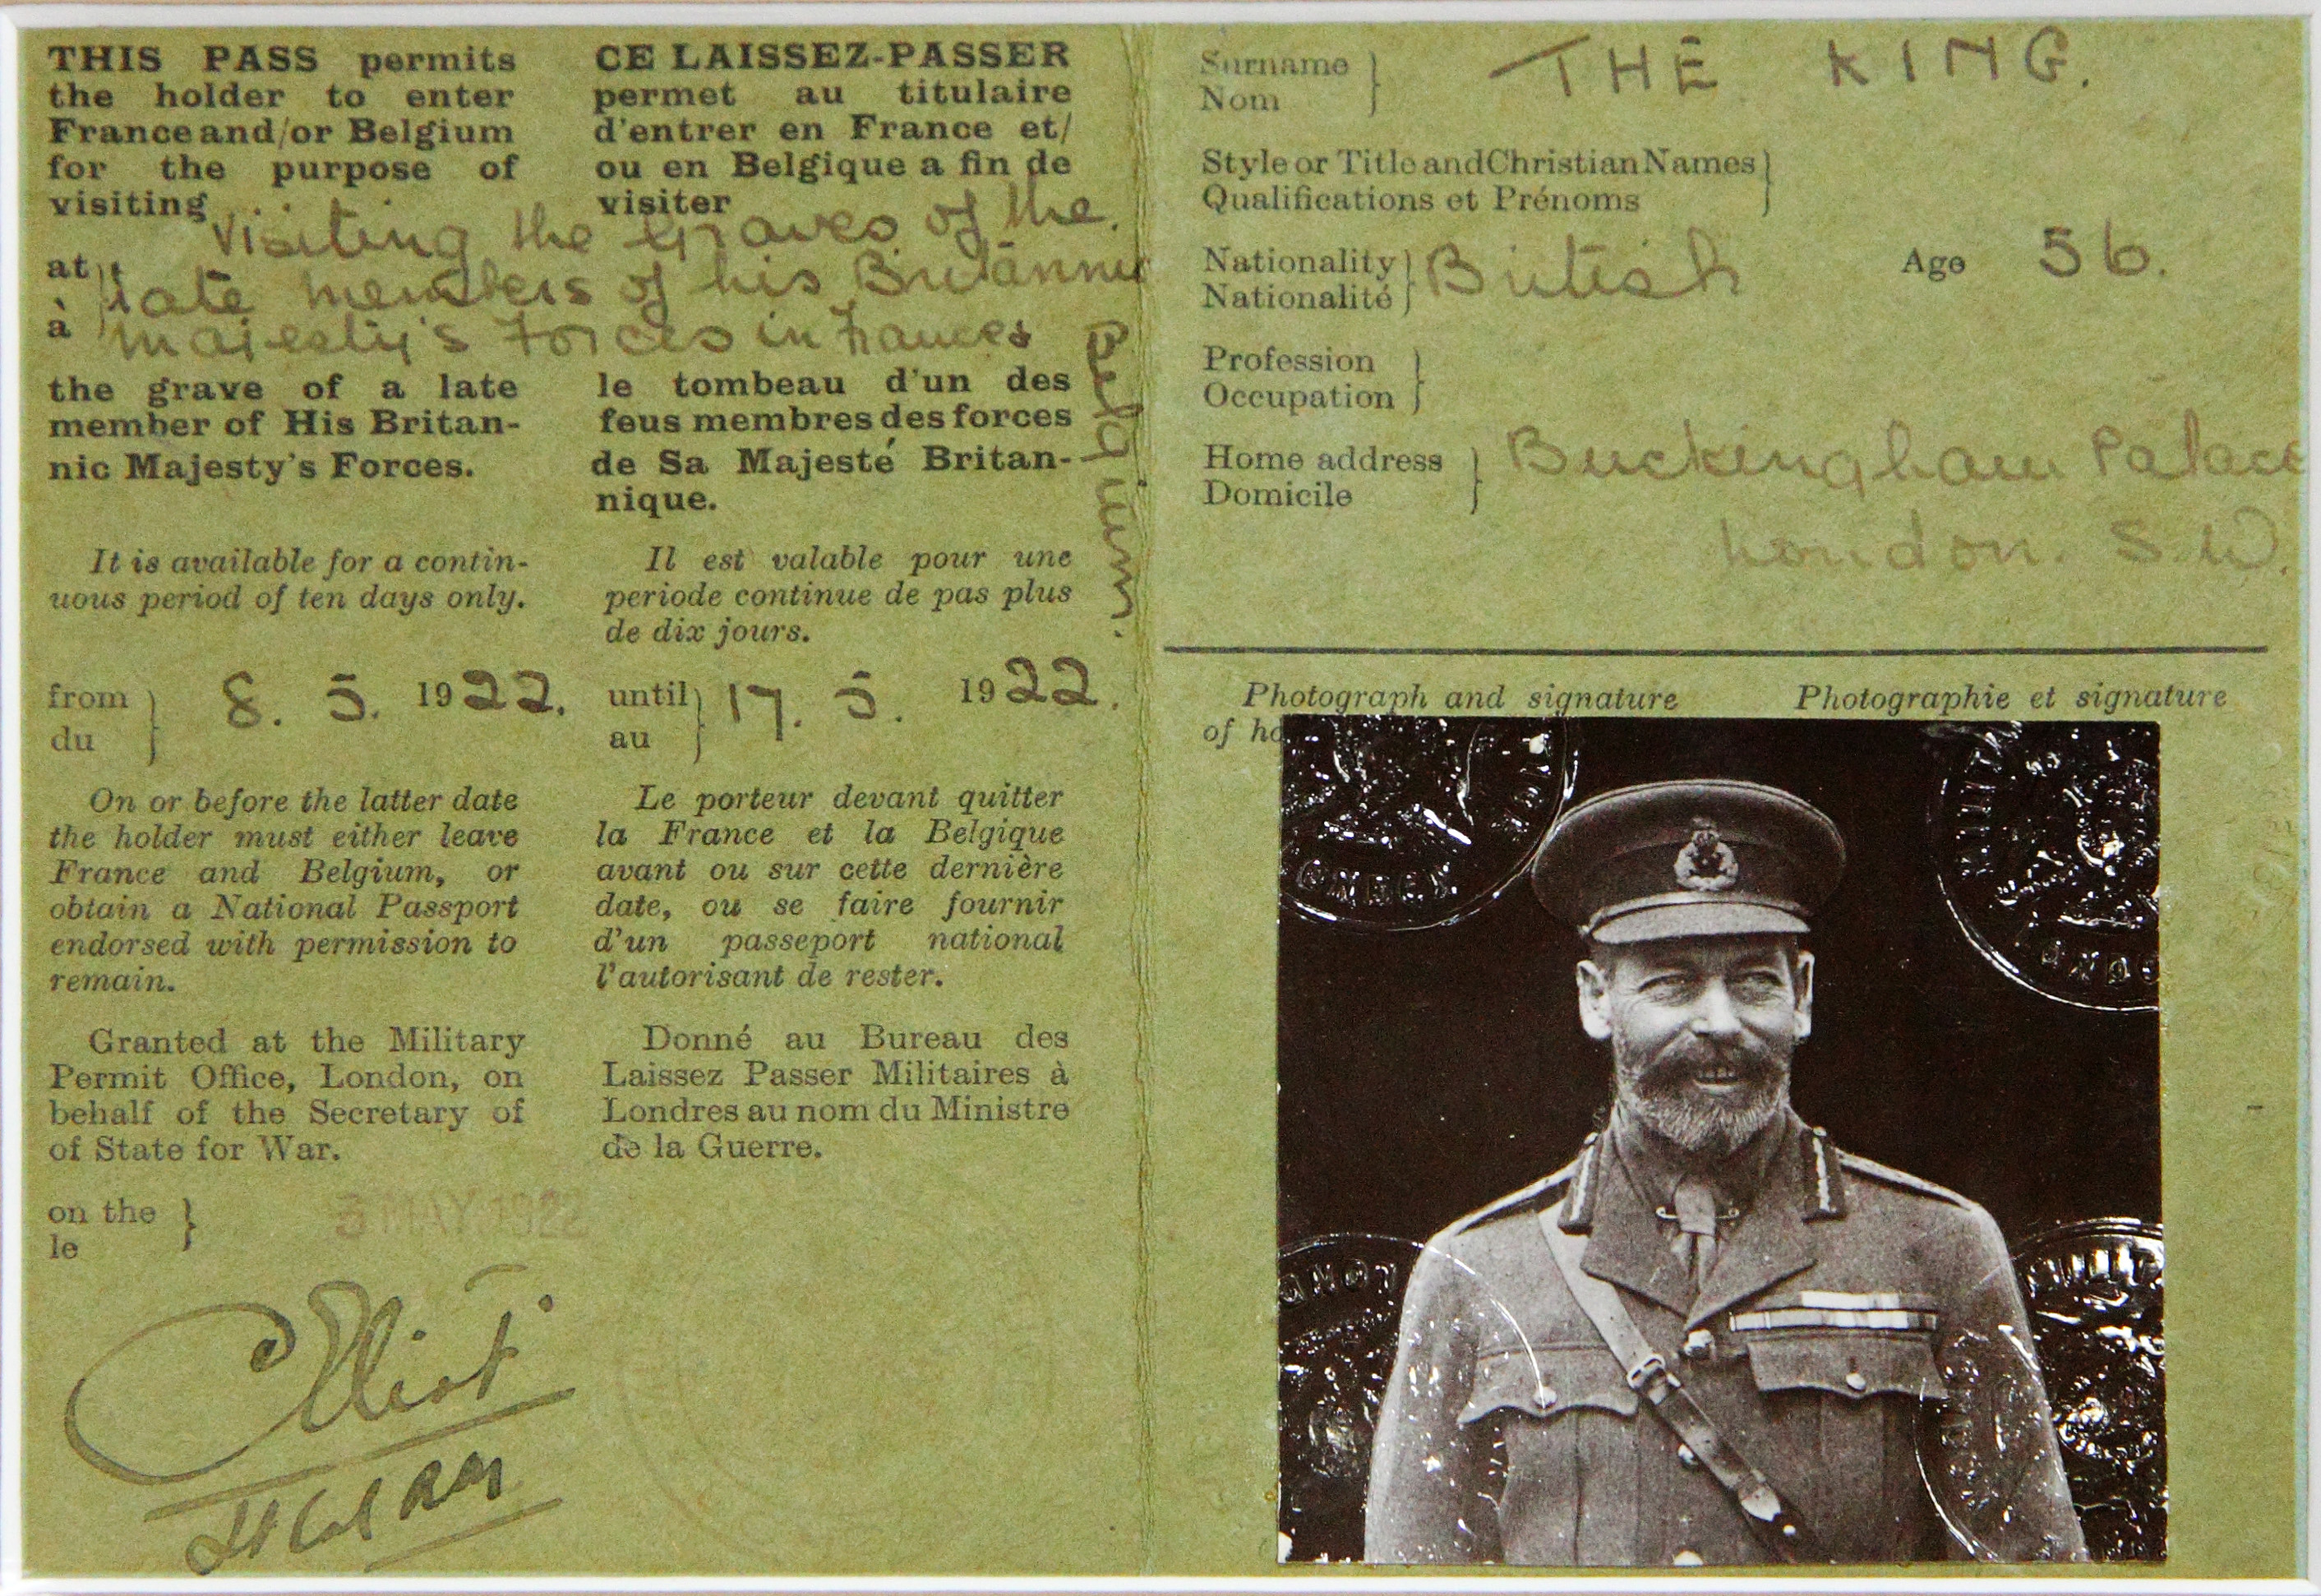 THIS PASS permits
the holder to enter
France and/or Belgium
for the purpose of
visiting
CE LAISSEZ-PASSER
permet au titulaire
d'entrer en France et/
ou en Belgique a fin de
visiter
visiting the graves of the
at
à
late members of his Britannic
majesty's Forces in France &
Belgium.
the grave of a late
member of His Britan-
nic Majesty's Forces.
le tombeau d'un des
feus membres des forces
de Sa Majesté Britan-
nique.
It is available for a contin-
uous period of ten days only.
Il est valable pour une
periode continue de pas plus
de dix jours.
from
du
8. 5. 1922.
until
au
17. 5. 1922.
On or before the latter date
the holder must either leave
France and Belgium, or
obtain a National Passport
endorsed with permission to
remain.
Le porteur devant quitter
la France et la Belgique
avant ou sur cette dernière
date, ou se faire fournir
d'un passeport national
l'autorisant de rester.
Granted at the Military
Permit Office, London, on
behalf of the Secretary of
of State for War.
Donné au Bureau des
Laissez Passer Militaires à
Londres au nom du Ministre
de la Guerre.
on the
le
5 MAY 1922
Elliot
Surname
Nom
THE KING.
Style or Title and Christian Names
Qualifications et Prénoms
Nationality
Nationalité
British
Age 56.
Profession
Occupation
Home address
Domicile
Buckingham Palace
London. S.W.
Photograph and signature
of ho
Photographie et signature